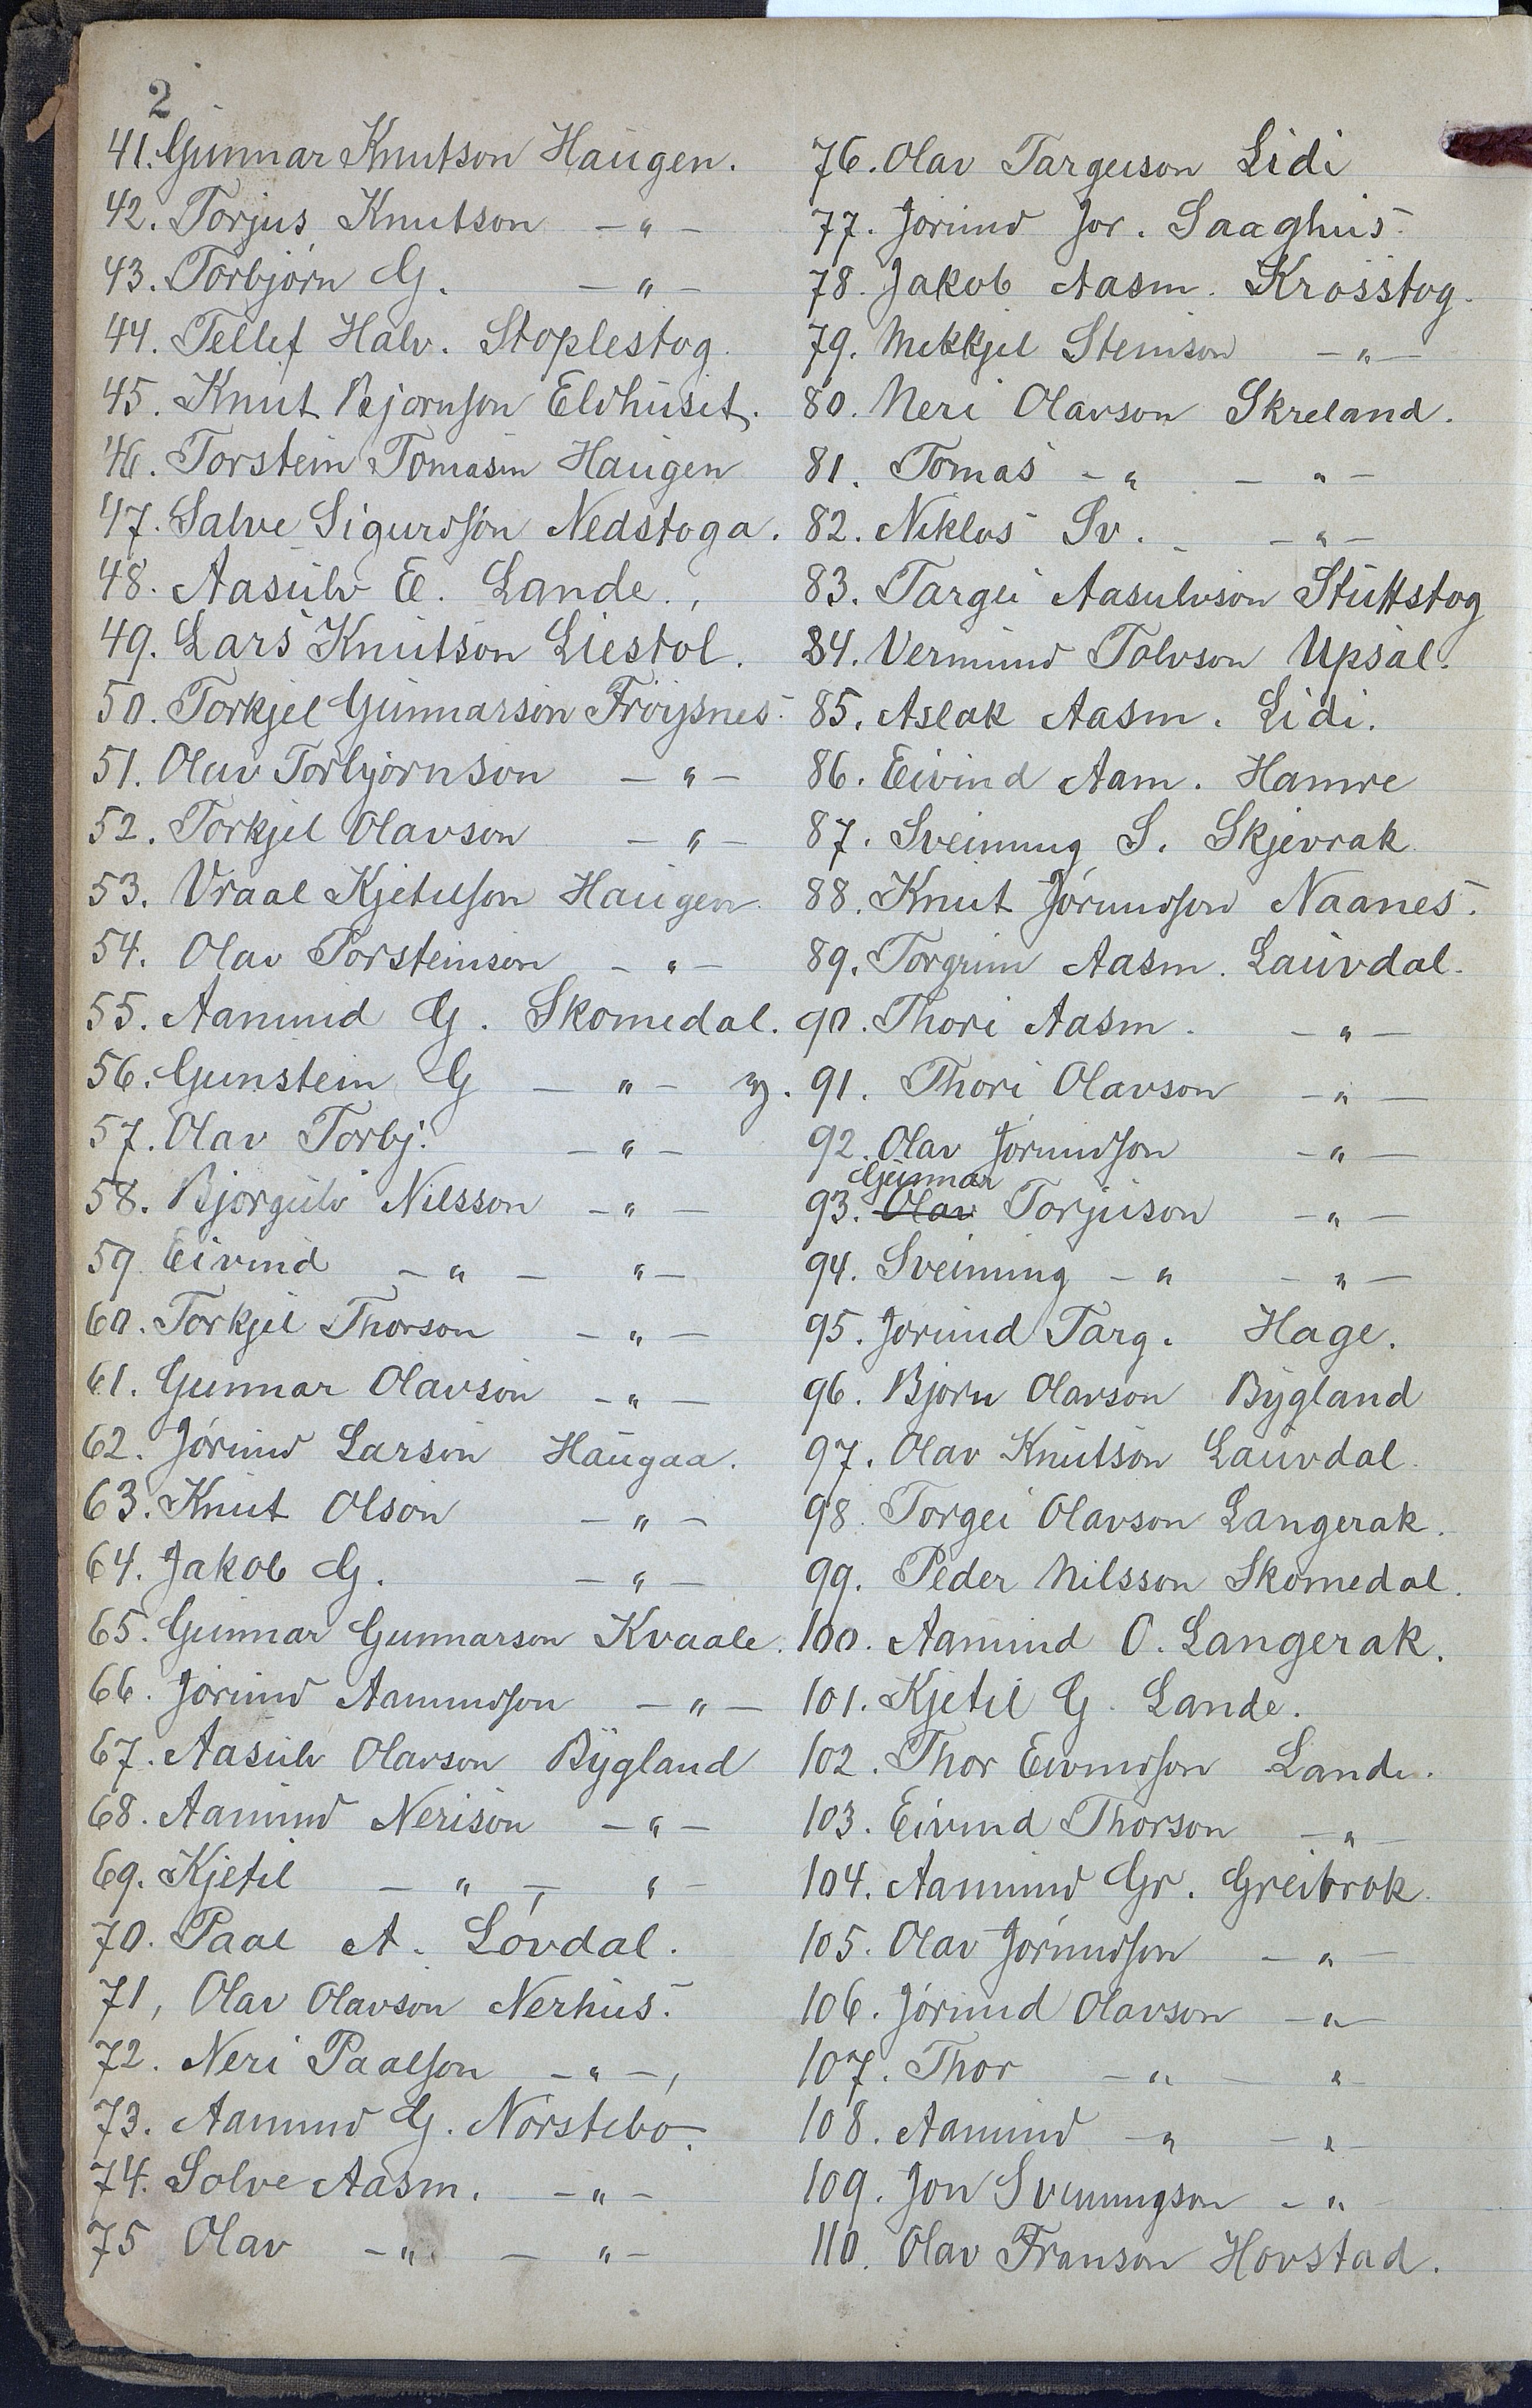 2
41. Gunnar Knutson Haugen.
42. Torjus Knutson -"-
43. Torbjørn G. -"-
44. Tellef Halv. Stoplestog.
45. Knut Bjørnson Eldhuset.
46. Torstein Tomasin Haugen
47. Salve Sigurdson Nedstoga.
48. Aasulv E. Lande.,
49. Lars Knutson Liestøl.
50. Torkjel Gunnarson Frøysnes.
51. Olav Torbjørnson -"-
52. Torkjel Olavson -"-
53. Vraal Kjetilson Haugen.
54. Olav Torsteinson -"-
55. Aamund G. Skomedal.
56. Gunstein G -"- y.
57. Olav Torbj. -"-
58. Bjørgulv Nilsson -"-
59 Eivind -"- "-
60. Torkjel Thorson -"-
61. Gunnar Olavson -"-
62. Jørund Larson Haugaa.
63. Knut Olson -"-
64. Jakob G. -"-
65. Gunnar Gunnarson Kvaale.
66. Jørund Aamundson -"-
67. Aasulv Olavson Bygland
68. Aamund Nerison -"-
69. Kjetil -"- "-
70. Paal A. Løvdal.
71, Olav Olavson Nerhus.
72. Neri Paalson -"-,
73. Aamund G. Nørstebø.
74. Solve Aasm. -"-
75 Olav -"- - "-
76. Olav Targeison Lidi
77. Jørund Jor. Saaghus.
78. Jakob Aasm. Krosstog.
79. Mekkjel Steinson -"-
80. Neri Olavson Skreland.
81. Tomas -" - "-
82. Niklos Sv. - -"-
83. Targei Aasulvson Stuttstog
84. Vermund Tolvson Upsal.
85. Aslak Aasm. Lidi.
86. Eivind Aam. Hamre
87. Sveinung S. Skjevrak.
88. Knut Jørundson Naanes.
89. Torgrim Aasm. Lauvdal.
90. Thori Aasm. -"-
91. Thori Olavson -"-
92. Olav Jørundson -"-
Gunnar
93. Olav Torjuson -"-
94. Sveinung -" -"-
95. Jørund Targ. Hage.
96. Bjørn Olavson Bygland
97. Olav Knutson Lauvdal.
98. Torgei Olavson Langerak.
99. Peder Nilsson Skomedal.
100. Aamund O. Langerak.
101. Kjetil G. Lande.
102. Thor Eivindson Lande.
103. Eivind Thorson -"-
104. Aamund Gr. Greibrok.
105. Olav Jørundson -"-
106. Jørund Olavson -"-
107. Thor -"- "-
108. Aamund -" -"-
109. Jon Sveinungson -"-
110. Olav Franson Hovstad.